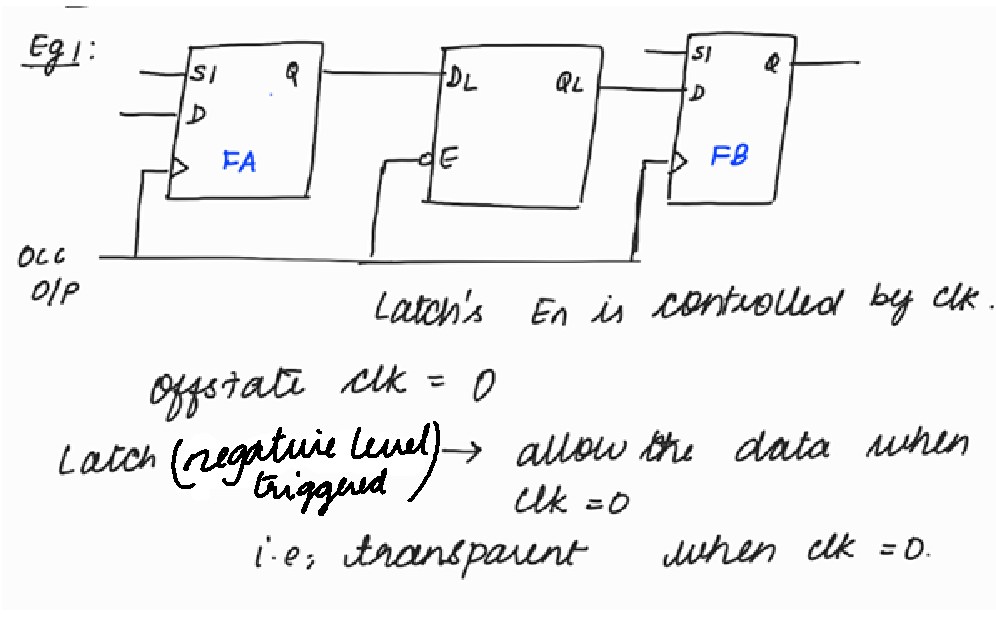 Eg 1:
SI Q
D
FA
DL QL
E
SI Q
D
FB
OCC
O/P
Latch's En is controlled by clk.
Offstate clk = 0
Latch (negative level triggered) → allow the data when
clk = 0
i.e; transparent when clk = 0.